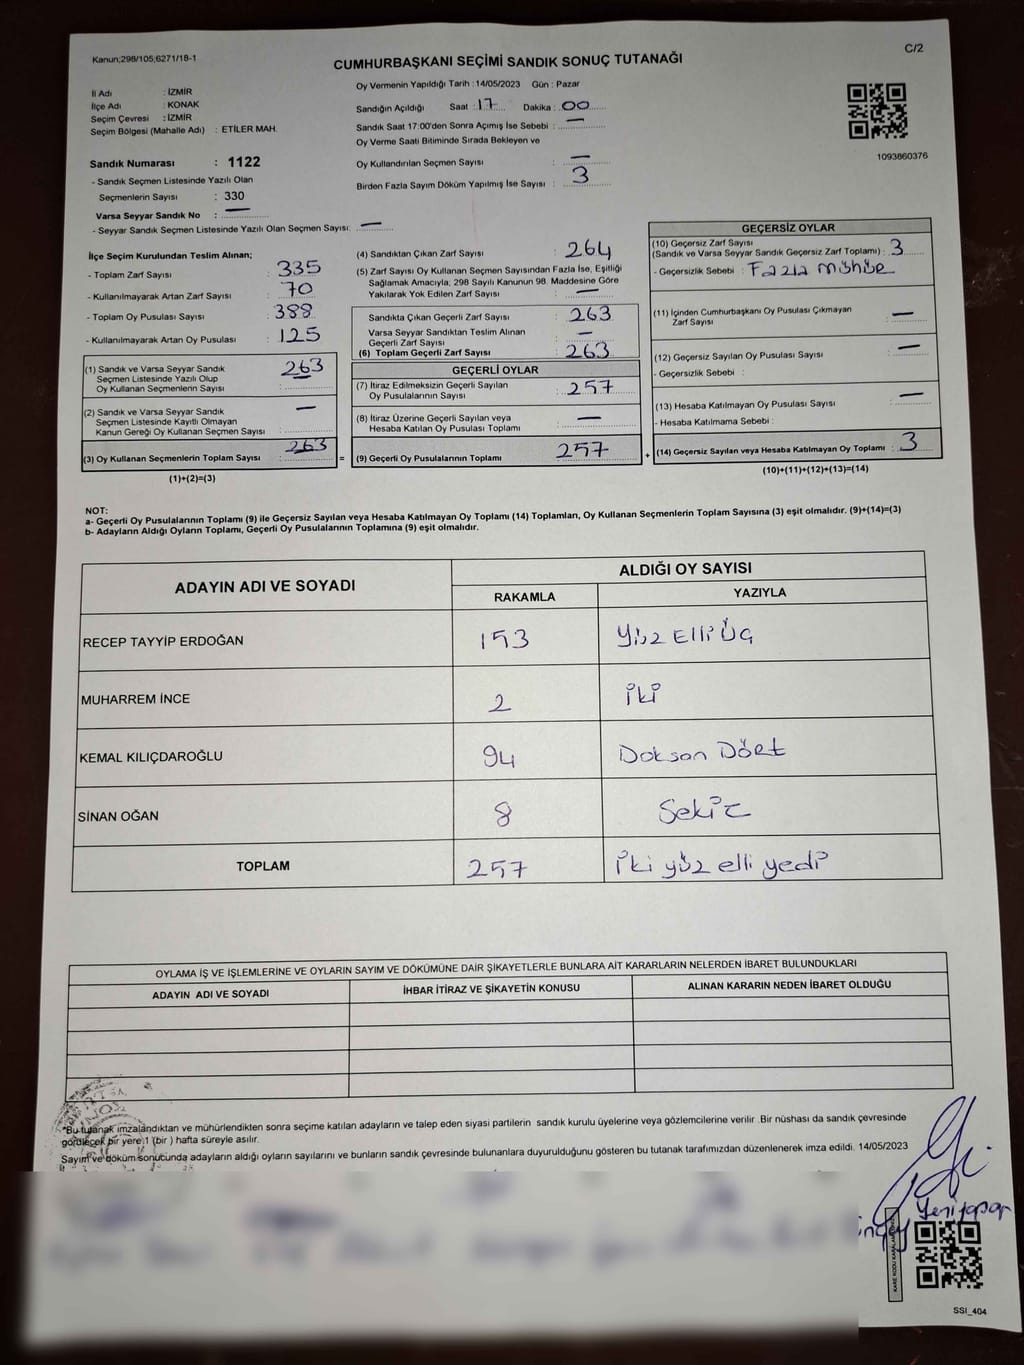 Kanun;298/105;6271/18-1
C/2
CUMHURBAŞKANI SEÇİMİ SANDIK SONUÇ TUTANAĞI
İl Adı : İZMİR
İlçe Adı : KONAK
Seçim Çevresi : İZMİR
Seçim Bölgesi (Mahalle Adı) : ETİLER MAH.
Sandık Numarası : 1122
- Sandık Seçmen Listesinde Yazılı Olan
Seçmenlerin Sayısı : 330
Varsa Seyyar Sandık No : —
- Seyyar Sandık Seçmen Listesinde Yazılı Olan Seçmen Sayısı: —
Oy Vermenin Yapıldığı Tarih : 14/05/2023 Gün : Pazar
Sandığın Açıldığı Saat : 17 Dakika : 00
Sandık Saat 17:00'den Sonra Açımış İse Sebebi : —
Oy Verme Saati Bitiminde Sırada Bekleyen ve
Oy Kullandırılan Seçmen Sayısı : —
Birden Fazla Sayım Döküm Yapılmış İse Sayısı : 3
1093860376
İlçe Seçim Kurulundan Teslim Alınan;
- Toplam Zarf Sayısı : 335
- Kullanılmayarak Artan Zarf Sayısı : 70
- Toplam Oy Pusulası Sayısı : 388
- Kullanılmayarak Artan Oy Pusulası : 125
(1) Sandık ve Varsa Seyyar Sandık
Seçmen Listesinde Yazılı Olup
Oy Kullanan Seçmenlerin Sayısı : 263
(2) Sandık ve Varsa Seyyar Sandık
Seçmen Listesinde Kayıtlı Olmayan
Kanun Gereği Oy Kullanan Seçmen Sayısı : —
(3) Oy Kullanan Seçmenlerin Toplam Sayısı : 263 =
(1)+(2)=(3)
(4) Sandıktan Çıkan Zarf Sayısı : 264
(5) Zarf Sayısı Oy Kullanan Seçmen Sayısından Fazla İse, Eşitliği
Sağlamak Amacıyla; 298 Sayılı Kanunun 98. Maddesine Göre
Yakılarak Yok Edilen Zarf Sayısı : —
Sandıkta Çıkan Geçerli Zarf Sayısı : 263
Varsa Seyyar Sandıktan Teslim Alınan
Geçerli Zarf Sayısı : —
(6) Toplam Geçerli Zarf Sayısı : 263
GEÇERLİ OYLAR
(7) İtiraz Edilmeksizin Geçerli Sayılan
Oy Pusulalarının Sayısı : 257
(8) İtiraz Üzerine Geçerli Sayılan veya
Hesaba Katılan Oy Pusulası Toplamı : —
(9) Geçerli Oy Pusulalarının Toplamı : 257 +
GEÇERSİZ OYLAR
(10) Geçersiz Zarf Sayısı
(Sandık ve Varsa Seyyar Sandık Geçersiz Zarf Toplamı) : 3
- Geçersizlik Sebebi : Fazla mühür
(11) İçinden Cumhurbaşkanı Oy Pusulası Çıkmayan
Zarf Sayısı : —
(12) Geçersiz Sayılan Oy Pusulası Sayısı : —
- Geçersizlik Sebebi :
(13) Hesaba Katılmayan Oy Pusulası Sayısı : —
- Hesaba Katılmama Sebebi :
(14) Geçersiz Sayılan veya Hesaba Katılmayan Oy Toplamı : 3
(10)+(11)+(12)+(13)=(14)
NOT:
a- Geçerli Oy Pusulalarının Toplamı (9) ile Geçersiz Sayılan veya Hesaba Katılmayan Oy Toplamı (14) Toplamları, Oy Kullanan Seçmenlerin Toplam Sayısına (3) eşit olmalıdır. (9)+(14)=(3)
b- Adayların Aldığı Oyların Toplamı, Geçerli Oy Pusulalarının Toplamına (9) eşit olmalıdır.
ADAYIN ADI VE SOYADI ALDIĞI OY SAYISI
RAKAMLA YAZIYLA
RECEP TAYYİP ERDOĞAN 153 Yüz Elli Üç
MUHARREM İNCE 2 iki
KEMAL KILIÇDAROĞLU 94 Doksan Dört
SİNAN OĞAN 8 Sekiz
TOPLAM 257 iki yüz elli yedi
OYLAMA İŞ VE İŞLEMLERİNE VE OYLARIN SAYIM VE DÖKÜMÜNE DAİR ŞİKAYETLERLE BUNLARA AİT KARARLARIN NELERDEN İBARET BULUNDUKLARI
ADAYIN ADI VE SOYADI İHBAR İTİRAZ VE ŞİKAYETİN KONUSU ALINAN KARARIN NEDEN İBARET OLDUĞU
*Bu tutanak imzalandıktan ve mühürlendikten sonra seçime katılan adayların ve talep eden siyasi partilerin sandık kurulu üyelerine veya gözlemcilerine verilir. Bir nüshası da sandık çevresinde
görülecek bir yere 1 (bir ) hafta süreyle asılır.
Sayım ve döküm sonucunda adayların aldığı oyların sayılarını ve bunların sandık çevresinde bulunanlara duyurulduğunu gösteren bu tutanak tarafımızdan düzenlenerek imza edildi. 14/05/2023
SSI_404